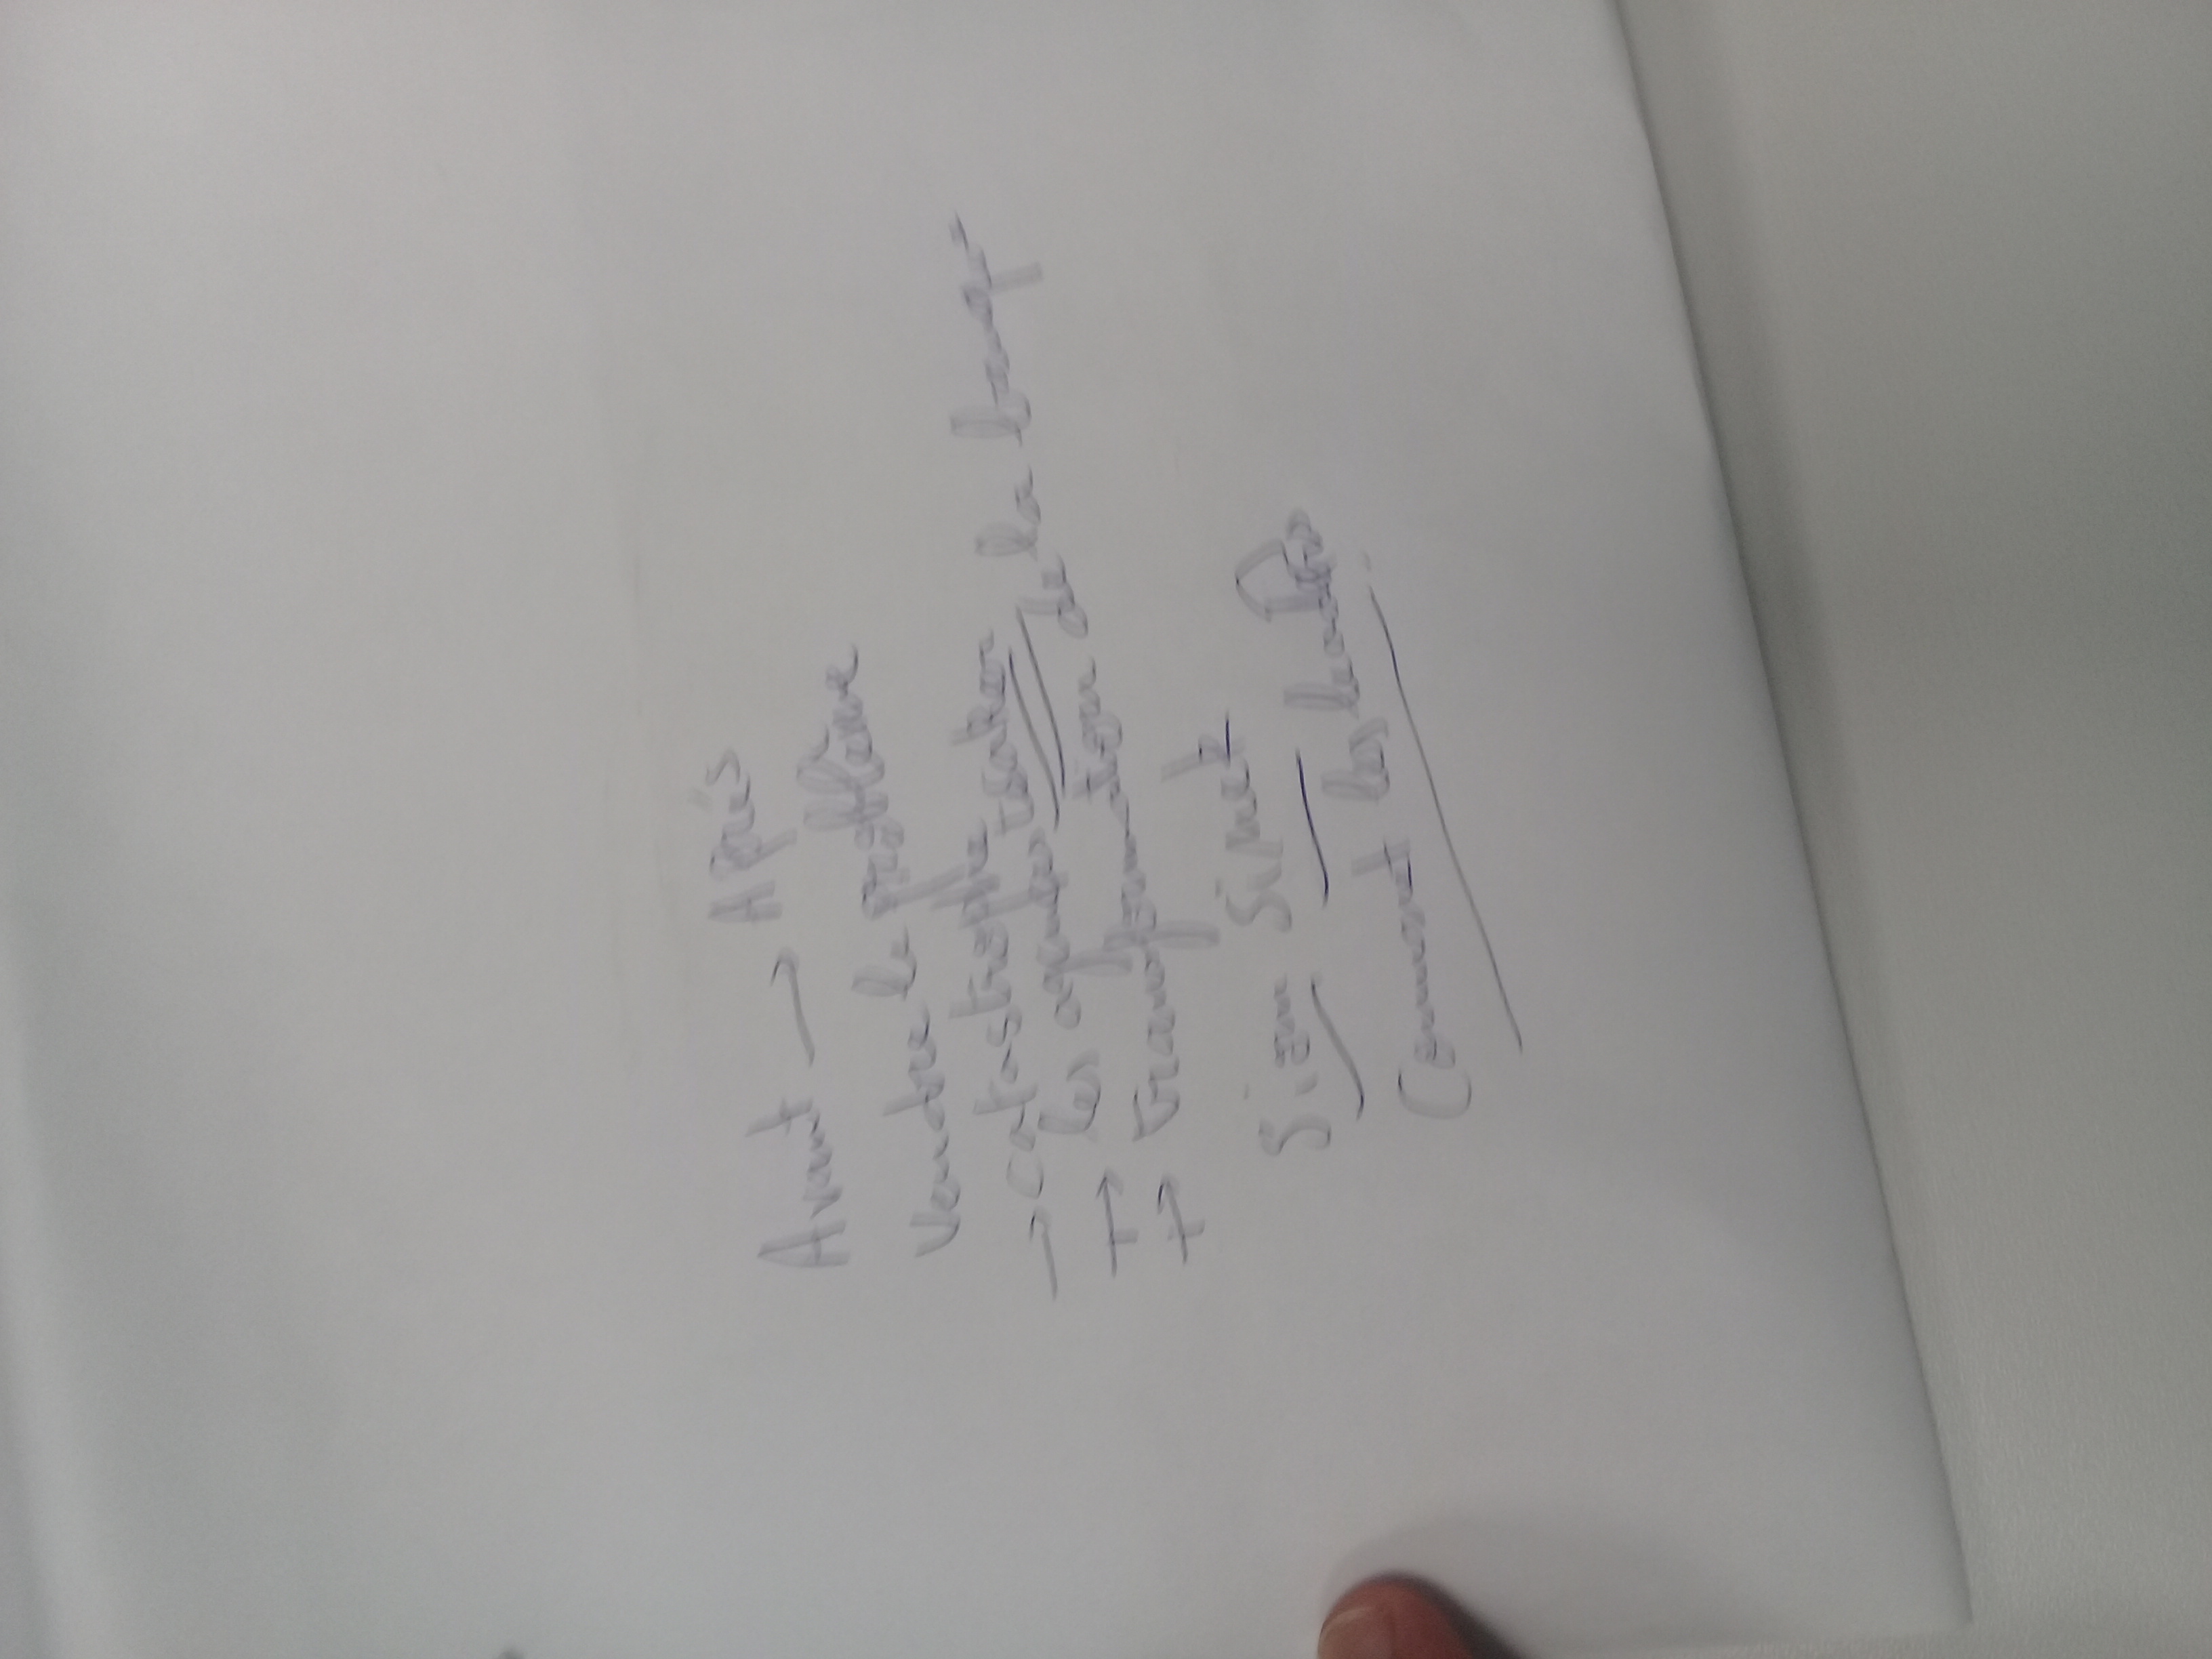 Avant → Après
Vendre le problème
→ catastrophe
→ les agences
→ transformation de la banque
Sion Sinek
Comment les leaders